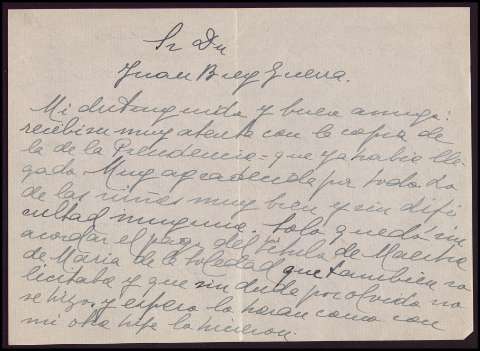 Sr Dn
Juan Brey Guerra.
Mi distinguido y buen amigo:
recibi su muy atenta con la copia de
la de la Presidencia = que ya habia lle-
gado. Muy agradecida por todo. Lo
de las niñas muy bien y sin difi
cultad ninguna. Solo quedó sin
acordar el pago del Titulo de Maestra
de Maria de la Soledad que tambien so
licitaba y que sin duda por olvido no
se hizo, y espero lo haran como con
mi otra hija lo hicieron.